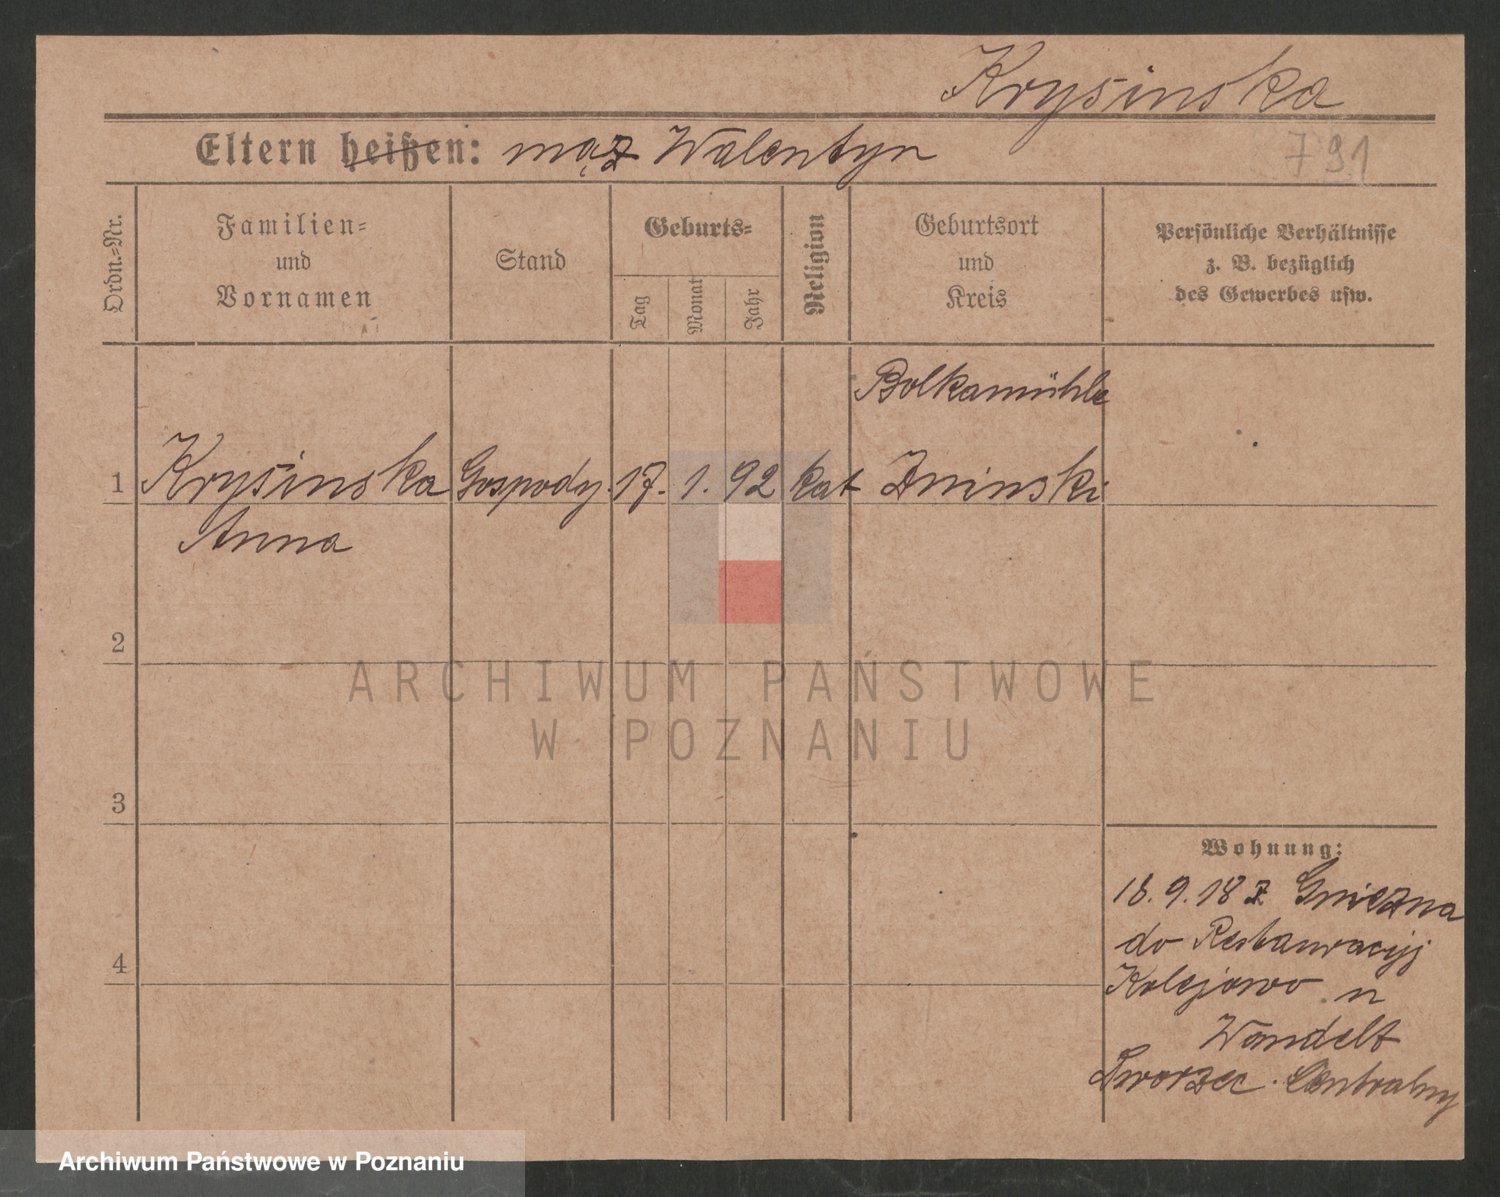 Krysinska
Eltern heißen: mąż Walentyn
791
Ordn.=Nr.
Familien=
und
Vornamen
Stand
Geburts=
Tag
Monat
Jahr
Religion
Geburtsort
und
Kreis
Persönliche Verhältnisse
z. B. bezüglich
des Gewerbes usw.
Bolkamühle
1 Krysinska Gospody. 17. 1. 92 kat Zninski
Anna
2
ARCHIWUM PAŃSTWOWE
W POZNANIU
3
Wohnung:
18.9.18 z Gniezna
do Restauracyj
4
Kolejowo u
Wandelt
Dworzec Centralny
Archiwum Państwowe w Poznaniu